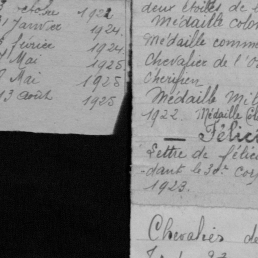 1922
Janvier 1924.
février 1924
Mai 1925
Mai 1925
13 août 1925
deux étoiles de
Médaille colo
Médaille comm
Chevalier de l'O
Chérifien
Médaille Mil
1922. Médaille Col
Félici
Lettre de félic
dant le 30e cor
1923.
Chevalier de